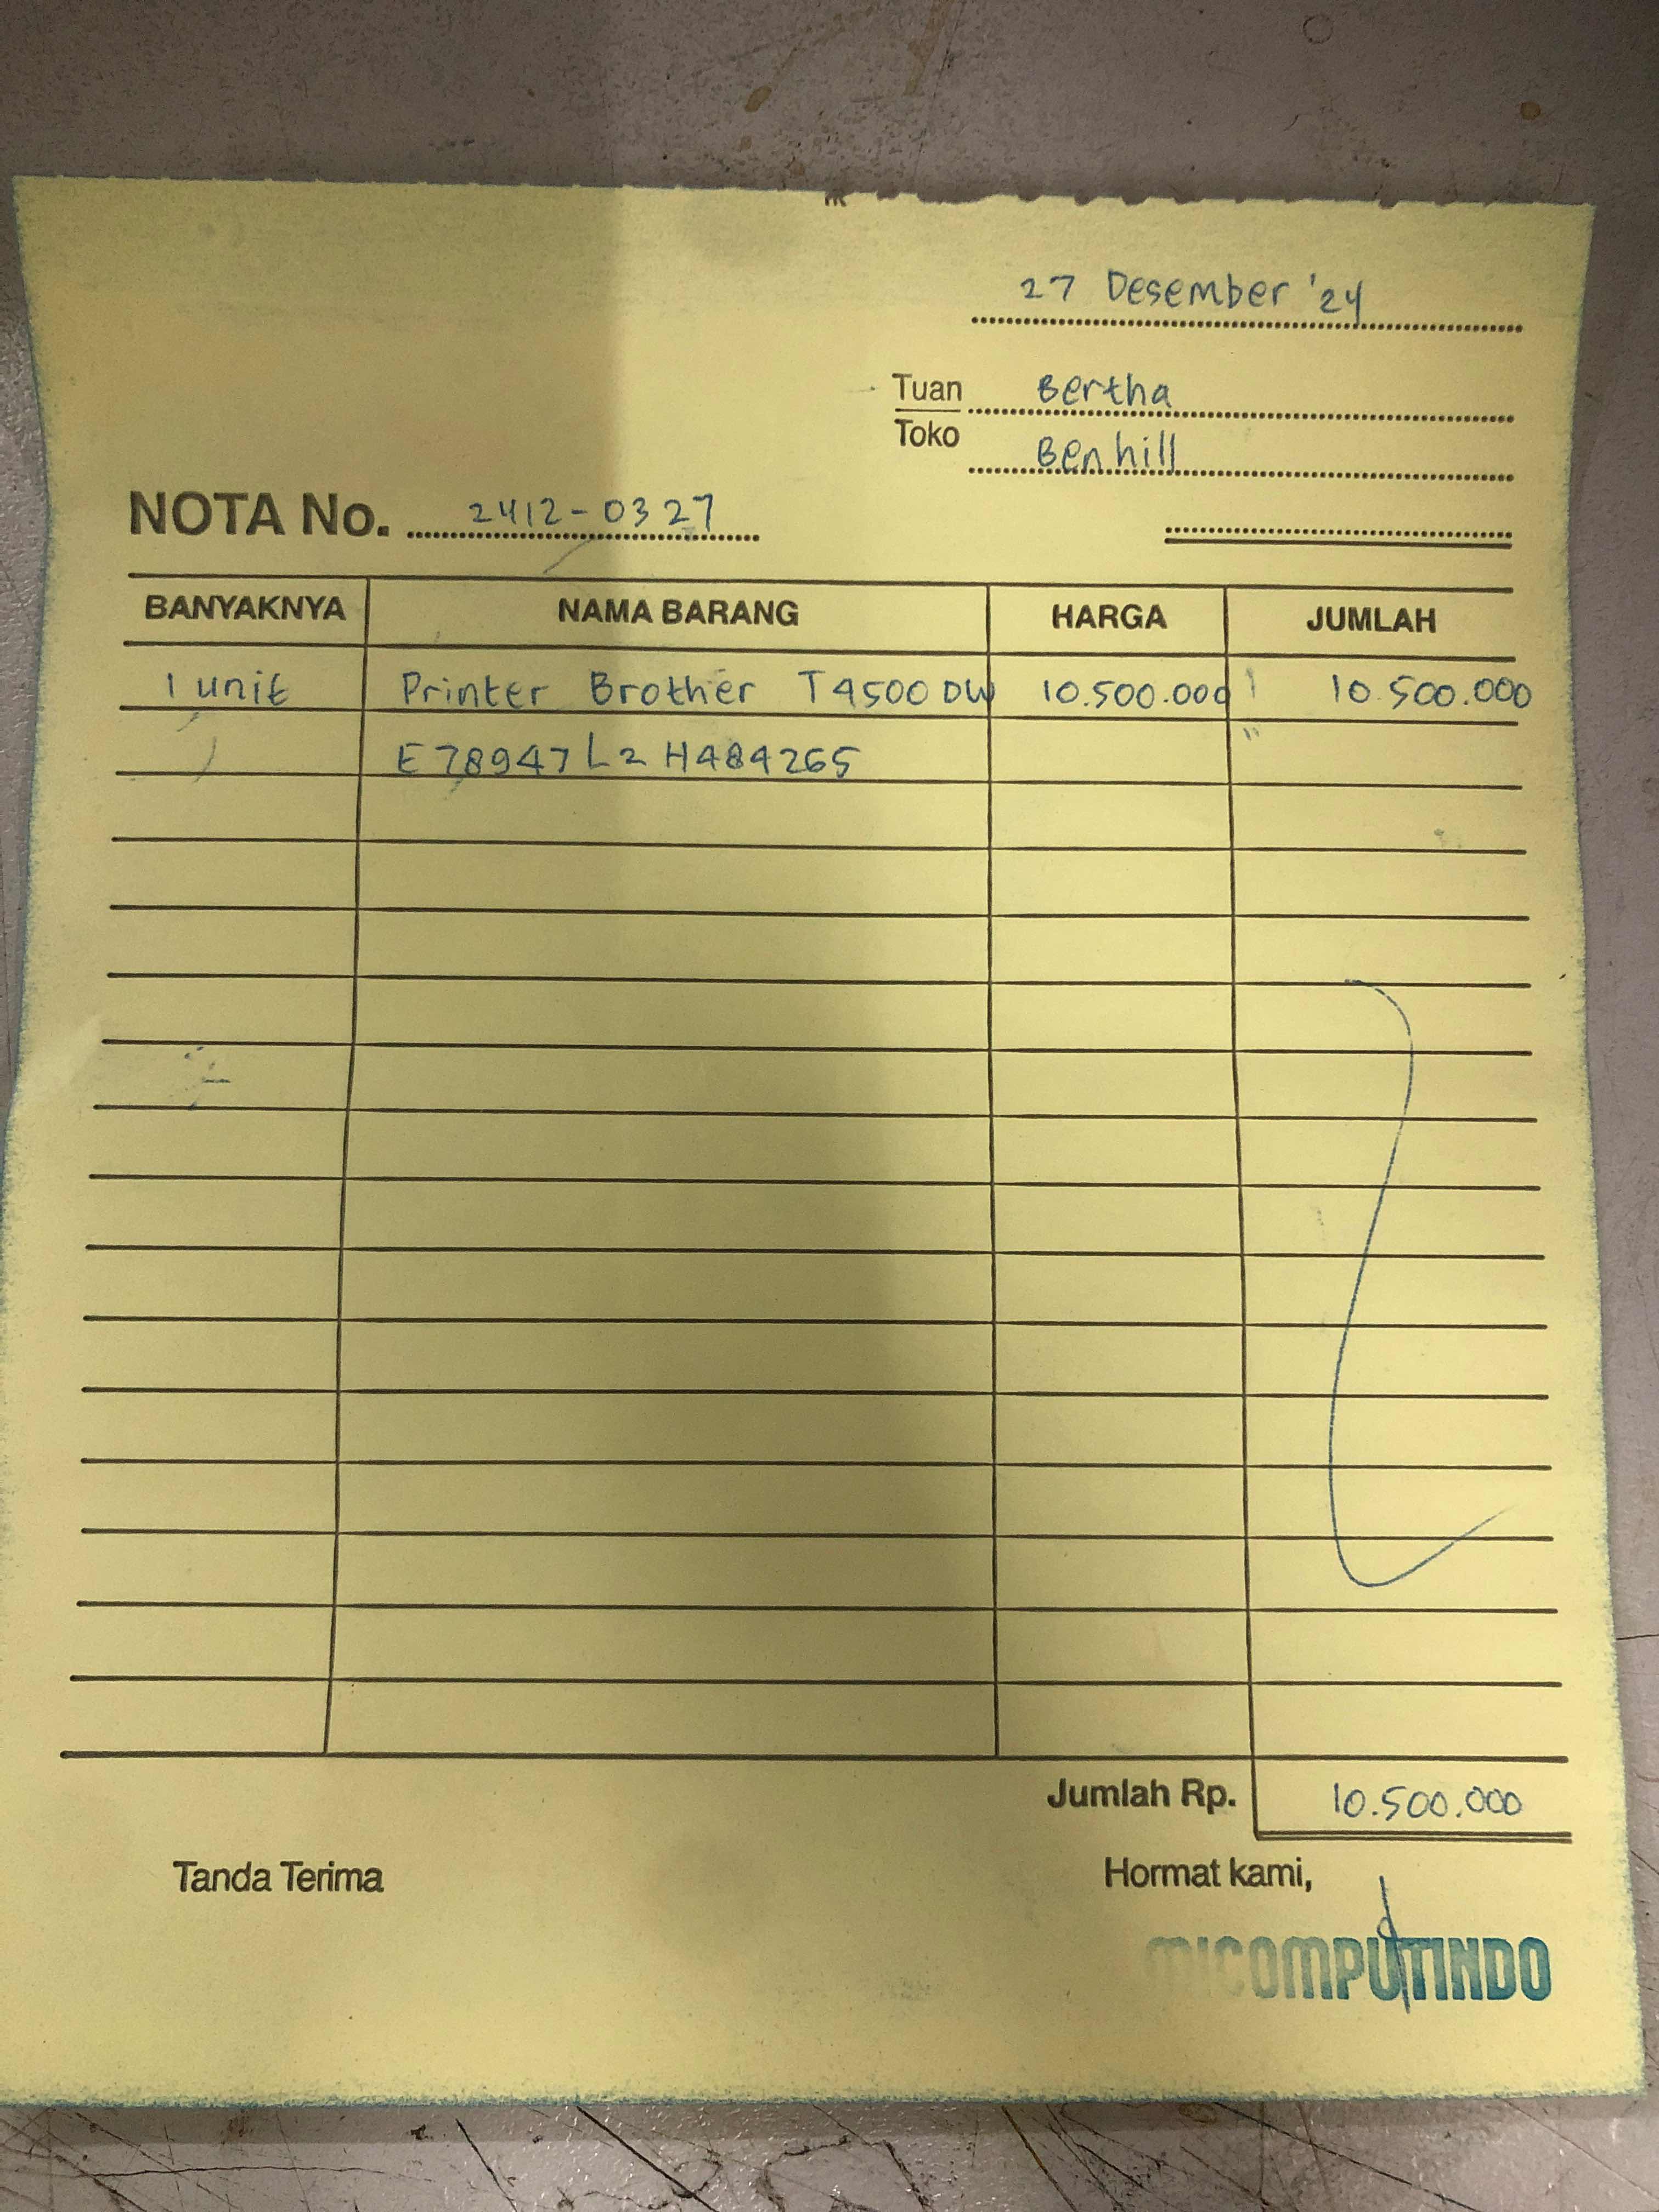 27 Desember '24
Tuan Bertha
Toko Benhill
NOTA No. 2412-0327
BANYAKNYA NAMA BARANG HARGA JUMLAH
1 unit Printer Brother T4500 DW 10.500.000 10.500.000
E78947L2H484265
Jumlah Rp. 10.500.000
Tanda Terima Hormat kami,
MICOMPUTINDO